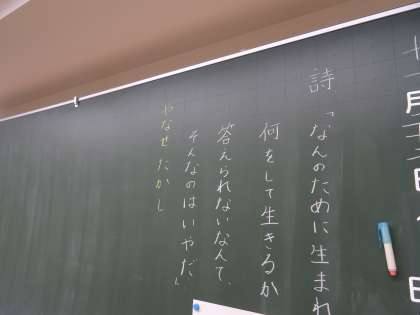 十一月三日(
日
詩「なんのために生まれ
何をして生きるか
答えられないなんて、
そんなのはいやだ」
やなせたかし